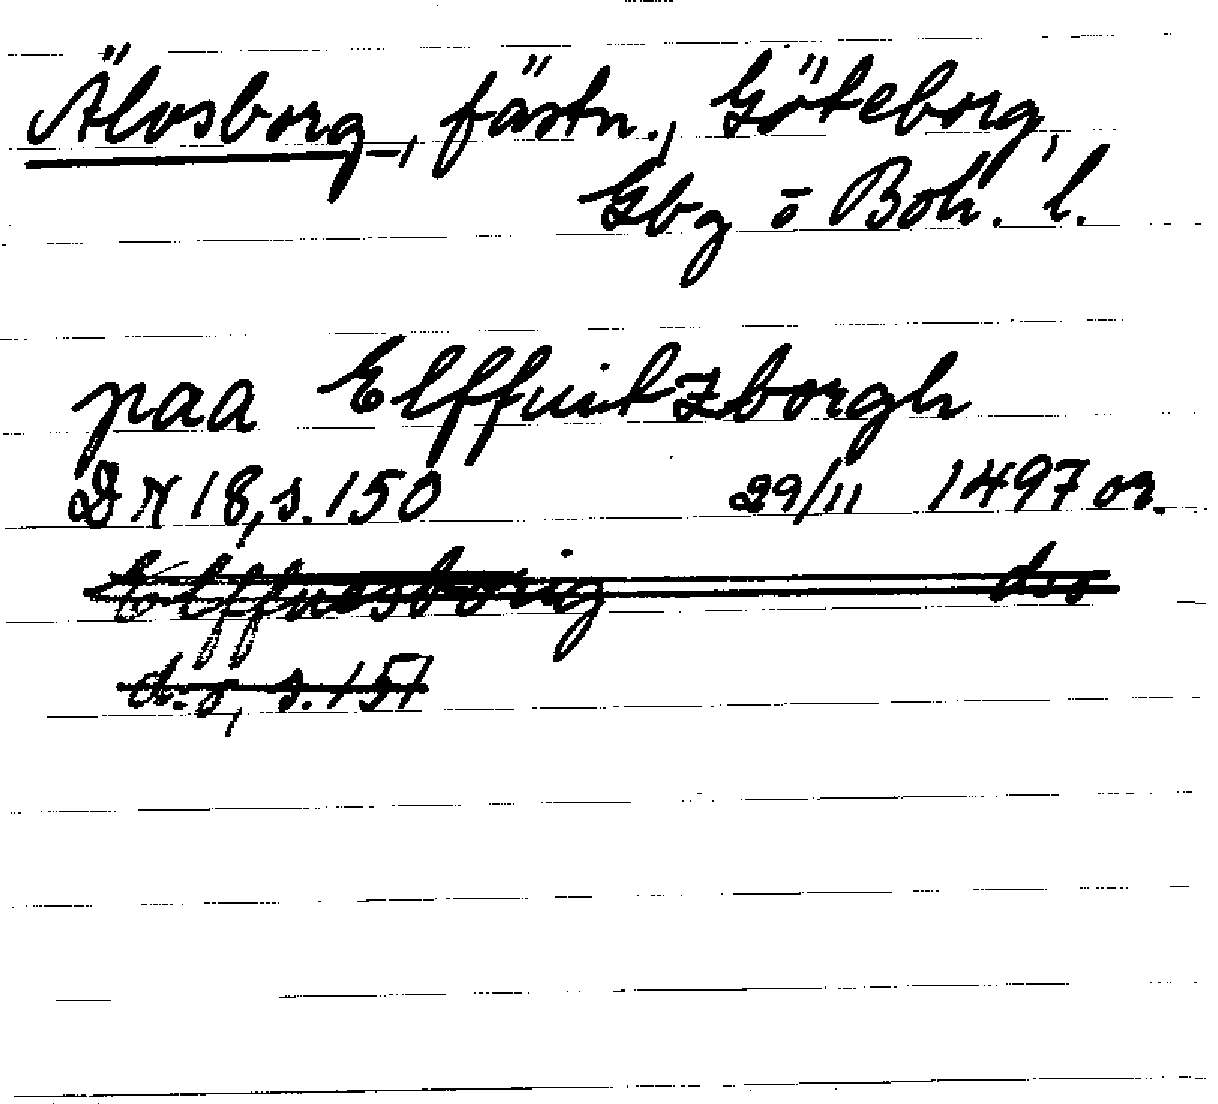 Älvsborg, fästn., Göteborg,
Gbg o Boh. l.
paa Elffuitzborgh
DN 18, s. 150 29/11 1497 or.
Elffuesborig d:o
d:o, s. 151